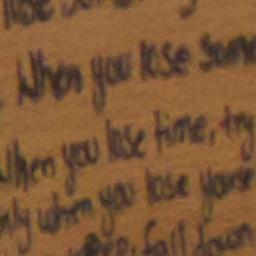 lose
When you lose some
When you lose time, try
only when you lose your
fall down